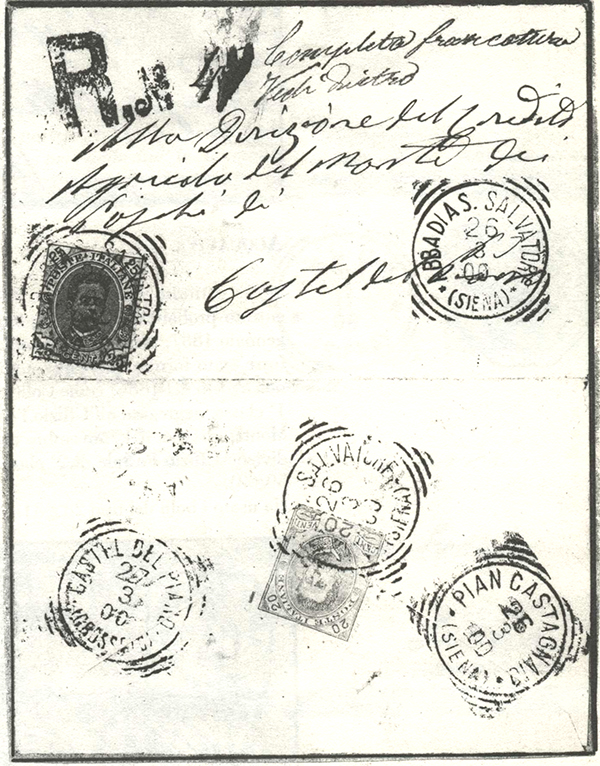 R.
Completa francatura
Vedi dietro
Alla Direzione del Credito
Agricolo del Monte dei
Paschi di
Castel del Piano
ABBADIA S. SALVATORE
26
3
00
(SIENA)
POSTE ITALIANE
SALVATORE (SIENA)
26
3
20 20
POSTE ITALIANE
20 20
CASTEL DEL PIANO
27
3
00
(GROSSETO)
PIAN CASTAGNAIO
26
3
00
(SIENA)